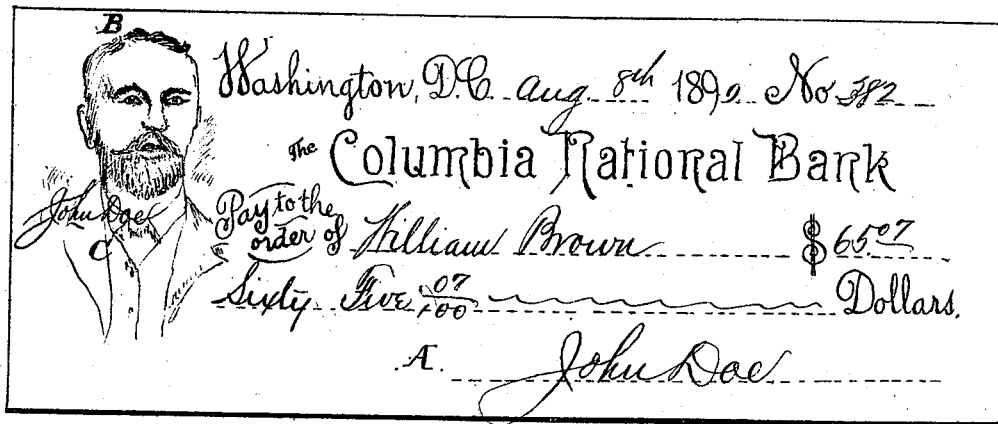 B
Washington, D.C. Aug. 8th 1890. No 382
The Columbia National Bank
Pay to the order of William Brown $65.07
John Doe
C
Sixty Five .07/100 Dollars.
A. John Doe